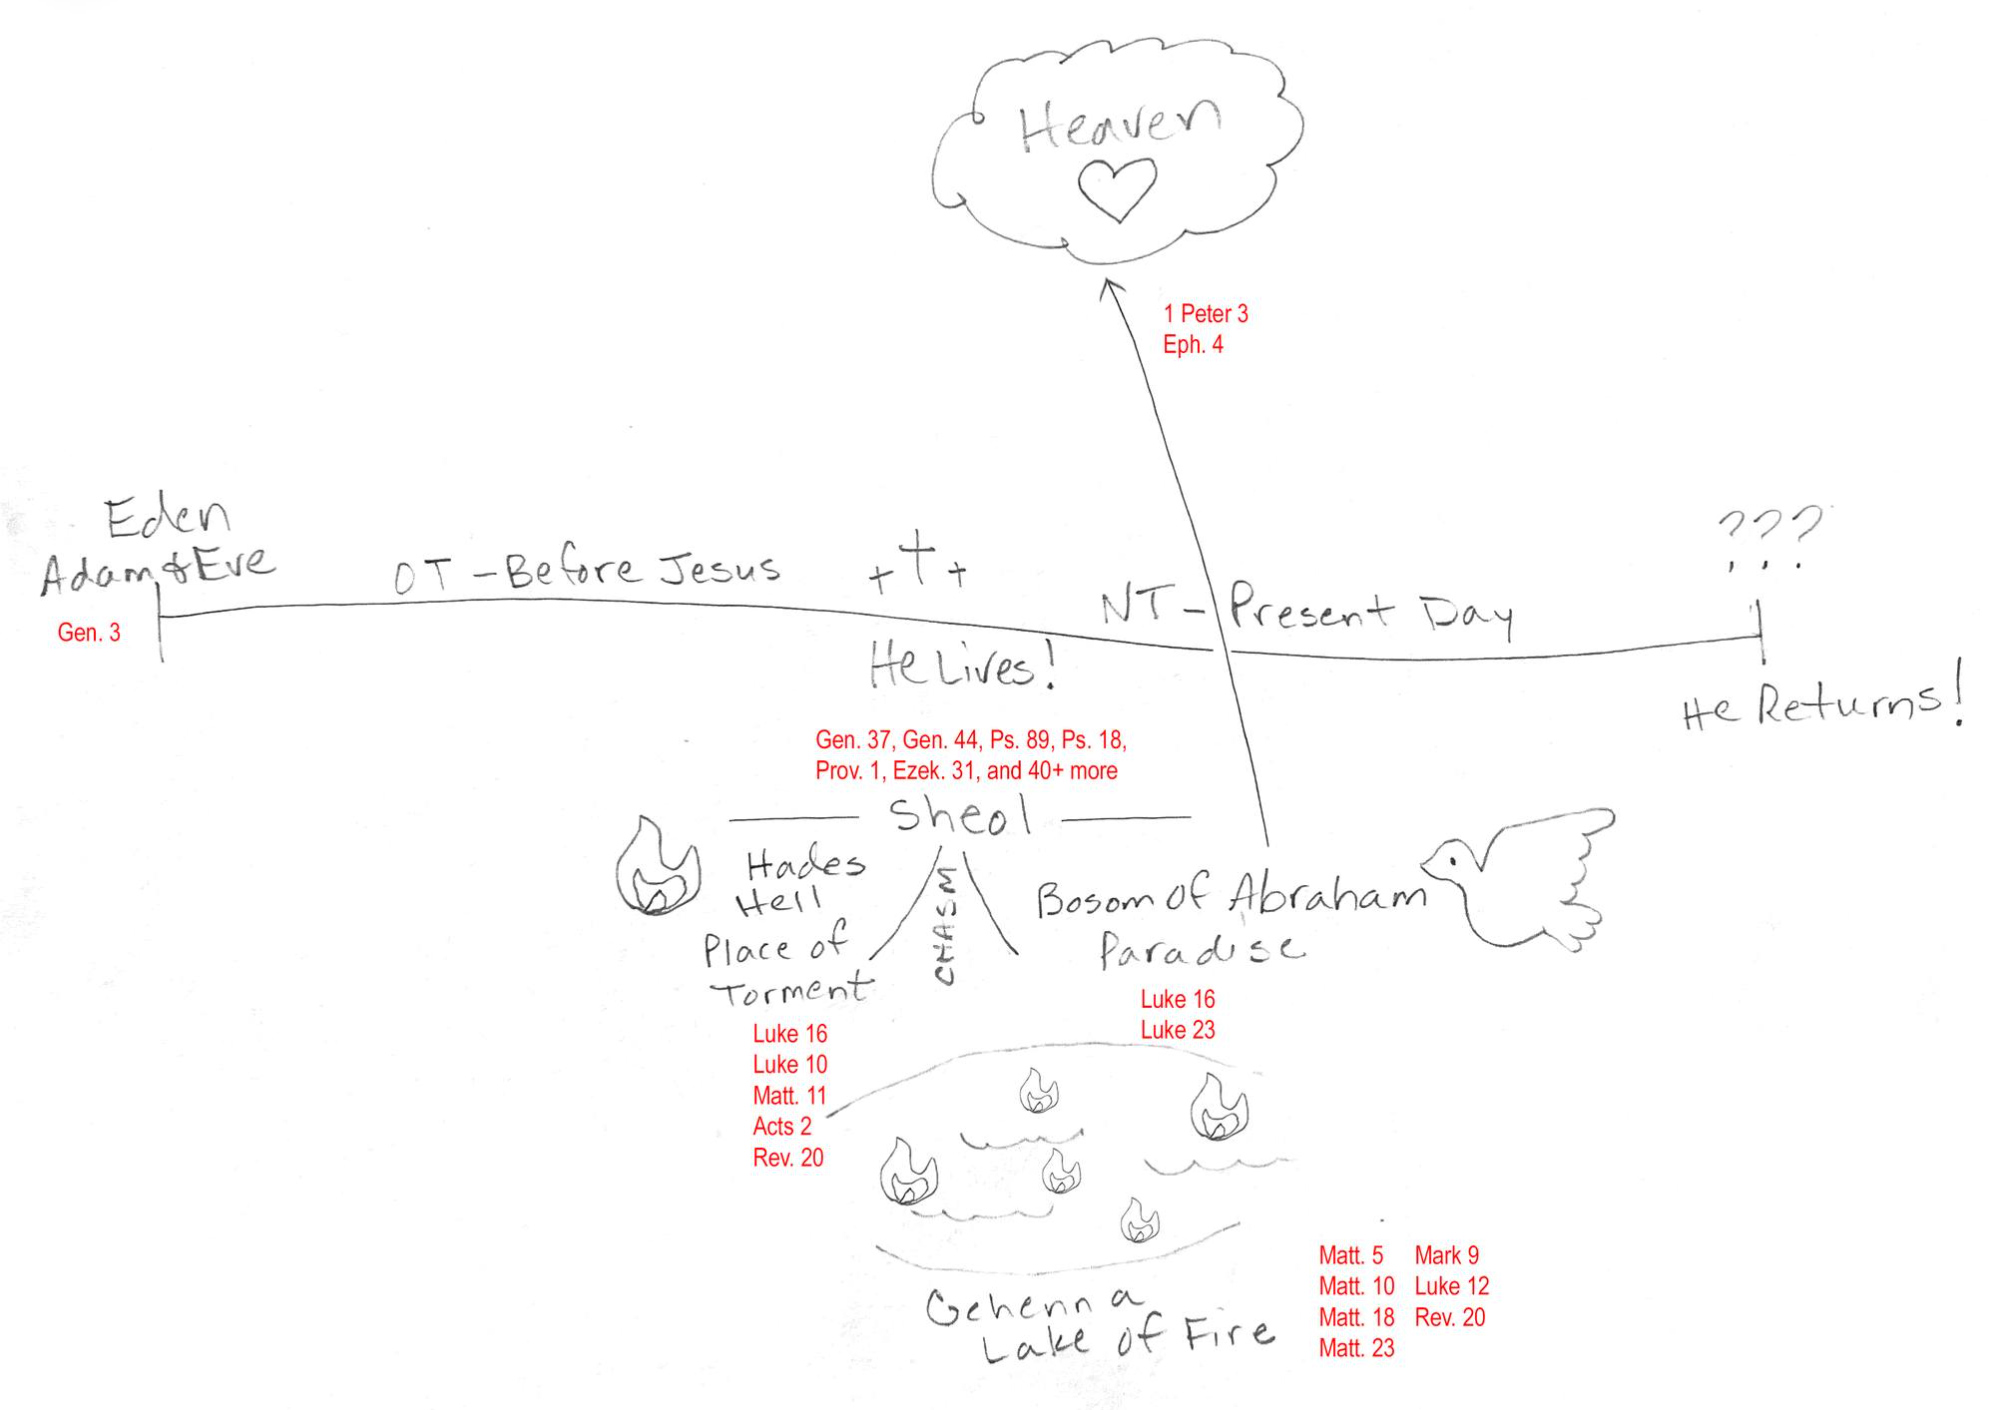 Heaven
1 Peter 3
Eph. 4
Eden
Adam & Eve
Gen. 3
OT - Before Jesus
He Lives!
NT - Present Day
???
He Returns!
Gen. 37, Gen. 44, Ps. 89, Ps. 18,
Prov. 1, Ezek. 31, and 40+ more
Sheol
Hades
Hell
Place of
Torment
CHASM
Bosom of Abraham
Paradise
Luke 16
Luke 23
Luke 16
Luke 10
Matt. 11
Acts 2
Rev. 20
Gehenna
Lake of Fire
Matt. 5 Mark 9
Matt. 10 Luke 12
Matt. 18 Rev. 20
Matt. 23